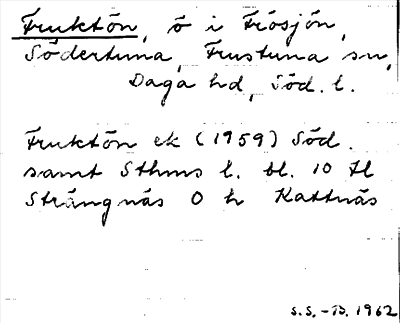 Fruktön, ö i Frösjön,
Södertuna, Frustuna sn,
Daga hd, Söd. l.
Fruktön ek (1959) Söd.
samt Sthms l. bl. 10 H
Strängnäs O h Kattnäs
S.S.-B. 1962